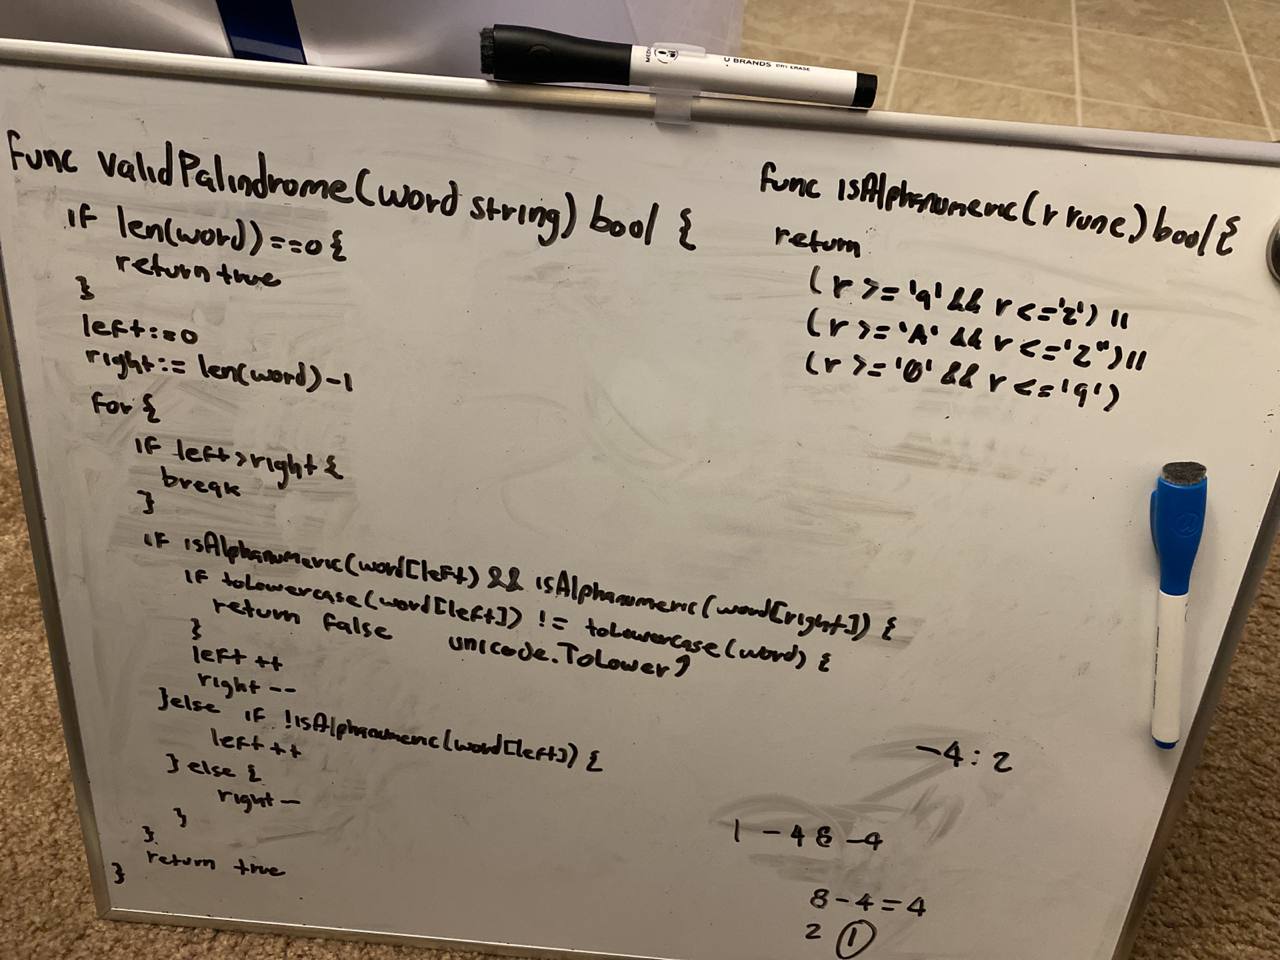 U BRANDS DRY ERASE
func validPalindrome(word string) bool {
if len(word)==0 {
return true
}
left:=0
right:= len(word)-1
for {
if left>right {
break
}
if isAlphanumeric(word[left) && isAlphanumeric(word[right]) {
if toLowercase(word[left]) != toLowercase(word) {
return false unicode.ToLower?
}
left ++
right --
}else if !isAlphanumeric(word[left]) {
left ++
} else {
right —
}
}
return true
}
func isAlphanumeric(r rune) bool {
return
(r >= 'a' && r <= 'z') ||
(r >= 'A' && r <= 'Z") ||
(r >= '0' && r <= '9')
-4:2
1 -4 8 -4
8-4=4
2 1